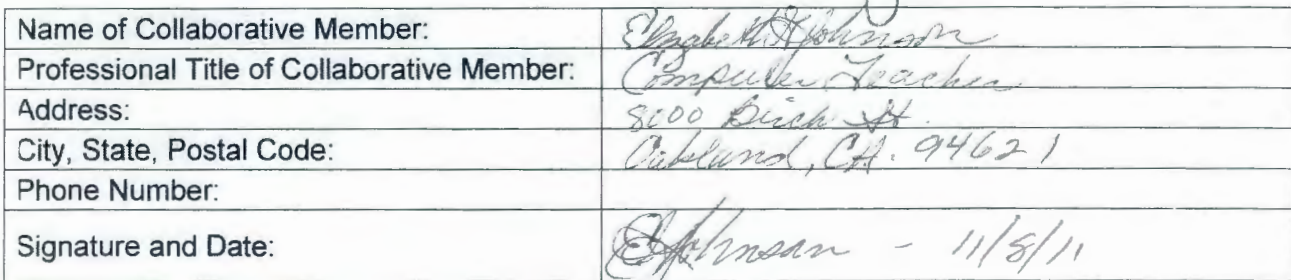 Name of Collaborative Member: Elizabeth Johnson
Professional Title of Collaborative Member: Computer Teacher
Address: 8000 Birch St.
City, State, Postal Code: Oakland, CA. 94621
Phone Number:
Signature and Date: EJohnson - 11/8/11